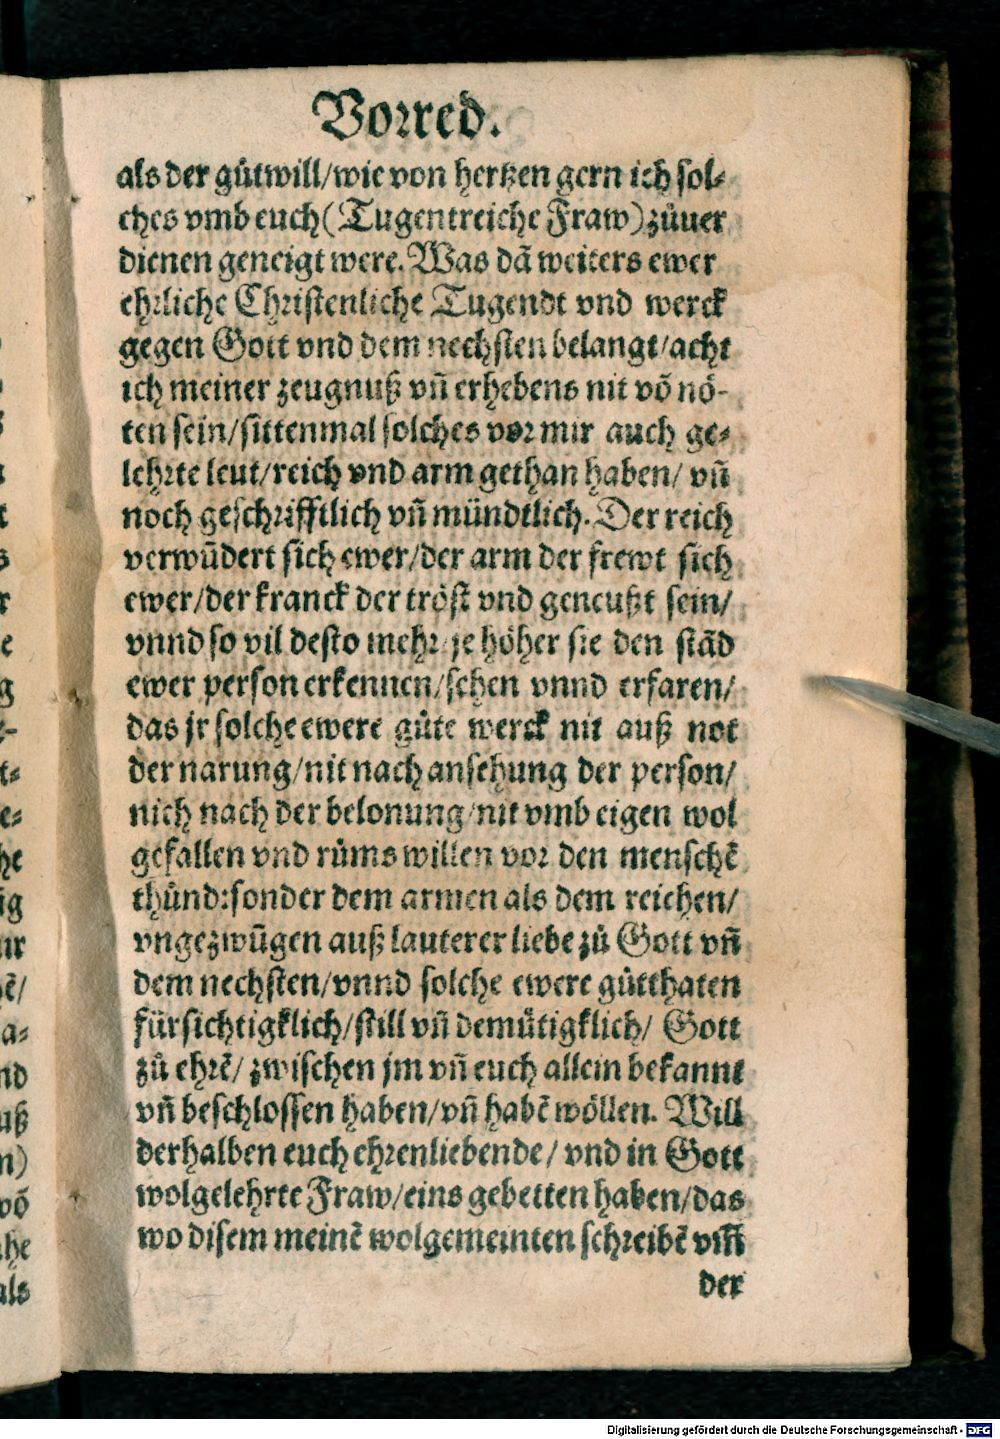 Vorred.
als der gůtwill/wie von hertzen gern ich sol-
ches vmb euch(Tugentreiche Fraw)zůuer
dienen geneigt were. Was dã weiters ewer
ehrliche Christenliche Tugendt vnd werck
gegen Gott vnd dem nechsten belangt/acht
ich meiner zeugnuß vñ erhebens nit võ nö-
ten sein/sittenmal solches vor mir auch ge-
lehrte leut/reich vnd arm gethan haben/ vñ
noch geschrifftlich vñ mündtlich. Der reich
verwũdert sich ewer/der arm der frewt sich
ewer/der kranck der tröst vnd geneußt sein/
vnnd so vil desto mehr/je höher sie den stãd
ewer person erkennen/sehen vnnd erfaren/
das jr solche ewere gůte werck nit auß not
der narung/nit nach ansehung der person/
nich nach der belonung/nit vmb eigen wol
gefallen vnd růms willen vor den menschẽ
thůnd:sonder dem armen als dem reichen/
vngezwũgen auß lauterer liebe zů Gott vñ
dem nechsten/vnnd solche ewere gůtthaten
fürsichtigklich/still vñ demůtigklich/ Gott
zů ehrẽ/ zwischen jm vñ euch allein bekannt
vñ beschlossen haben/vñ habẽ wöllen. Will
derhalben euch ehrenliebende/ vnd in Gott
wolgelehrte Fraw/eins gebetten haben/das
wo disem meinẽ wolgemeinten schreibẽ vm̃
der
Digitalisierung gefördert durch die Deutsche Forschungsgemeinschaft - DFG